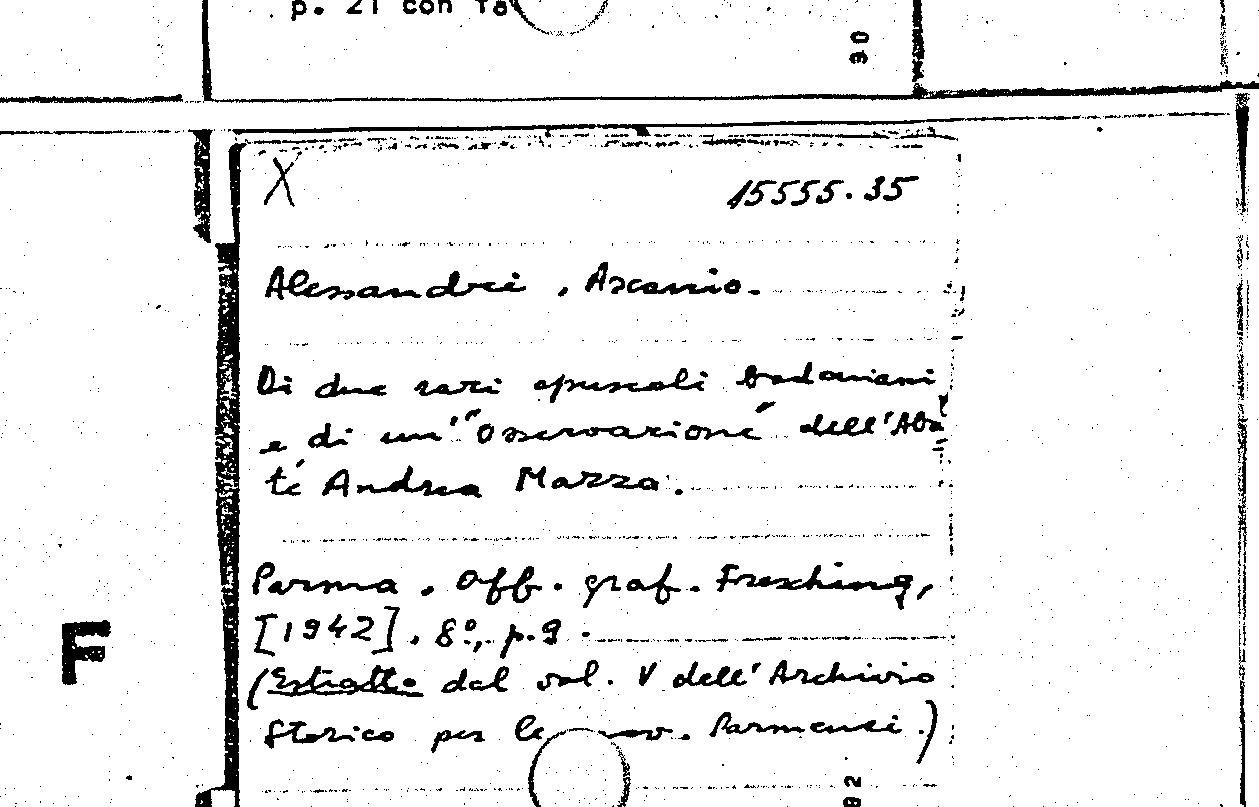 p. 21 con fa
90
X
15555.35
Alessandri, Ascanio.
Di due rari opuscoli bodoniani
e di un' "Osservazione" dell'Aba
te Andrea Mazza.
Parma. Off. graf. Fresching,
[1942]. 8°, p. 9.
(Estratto dal vol. V dell'Archivio
Storico per le prov. Parmensi.)
F
92